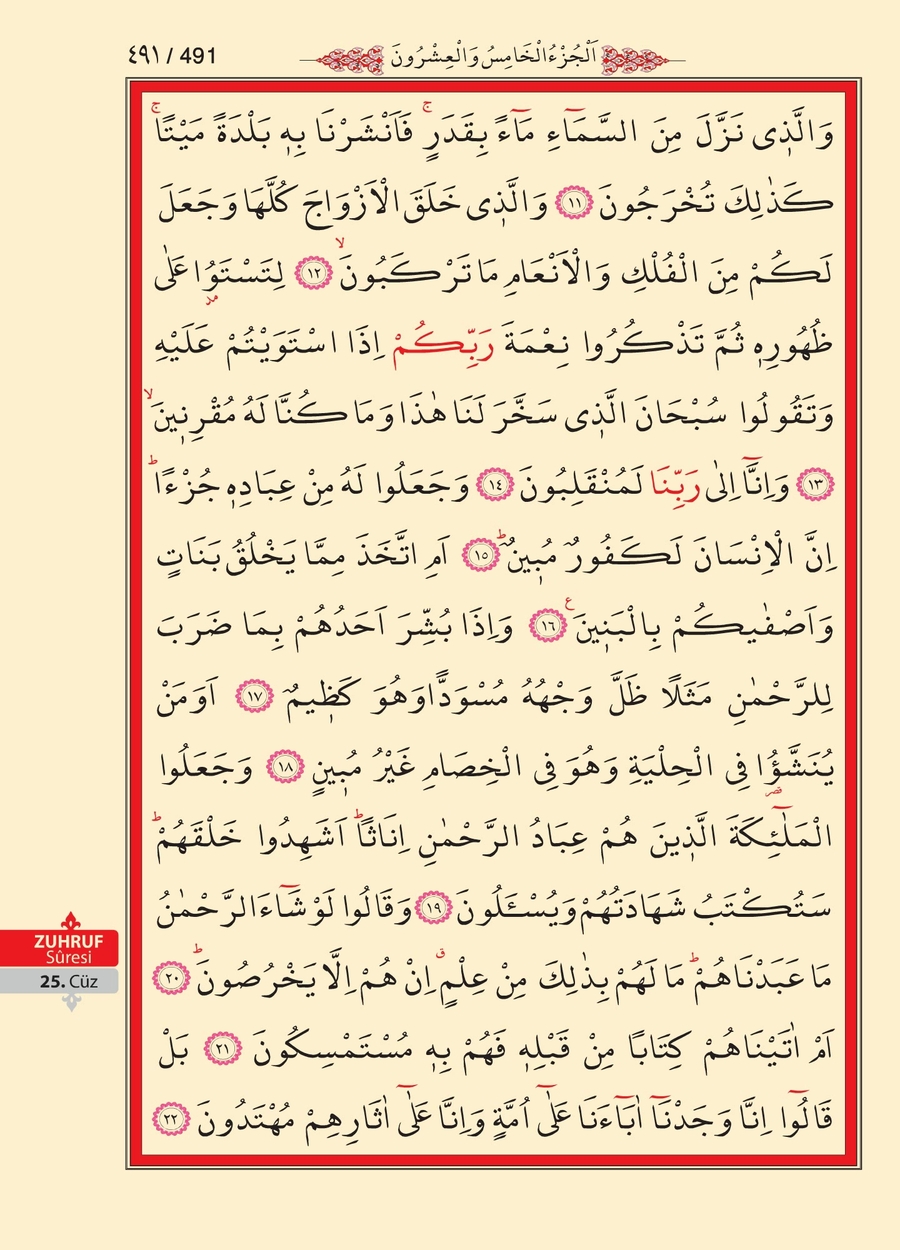 ٤٩١ / 491
اَلْجُزْءُ الْخَامِسُ وَالْعِشْرُونَ
وَالَّذ۪ى نَزَّلَ مِنَ السَّمَٓاءِ مَٓاءً بِقَدَرٍۚ فَاَنْشَرْنَا بِه۪ بَلْدَةً مَيْتًاۚ
كَذٰلِكَ تُخْرَجُونَ ﴿١١﴾ وَالَّذ۪ى خَلَقَ الْاَزْوَاجَ كُلَّهَا وَجَعَلَ
لَكُمْ مِنَ الْفُلْكِ وَالْاَنْعَامِ مَا تَرْكَبُونَۙ ﴿١٢﴾ لِتَسْتَوُ۫ا عَلٰى
ظُهُورِه۪ ثُمَّ تَذْكُرُوا نِعْمَةَ رَبِّكُمْ اِذَا اسْتَوَيْتُمْ عَلَيْهِ
وَتَقُولُوا سُبْحَانَ الَّذ۪ى سَخَّرَ لَنَا هٰذَا وَمَا كُنَّا لَهُ مُقْرِن۪ينَۙ
﴿١٣﴾ وَاِنَّٓا اِلٰى رَبِّنَا لَمُنْقَلِبُونَ ﴿١٤﴾ وَجَعَلُوا لَهُ مِنْ عِبَادِه۪ جُزْءًاۜ
اِنَّ الْاِنْسَانَ لَكَفُورٌ مُب۪ينٌۜ ﴿١٥﴾ اَمِ اتَّخَذَ مِمَّا يَخْلُقُ بَنَاتٍ
وَاَصْفٰيكُمْ بِالْبَن۪ينَ ع ﴿١٦﴾ وَاِذَا بُشِّرَ اَحَدُهُمْ بِمَا ضَرَبَ
لِلرَّحْمٰنِ مَثَلًا ظَلَّ وَجْهُهُ مُسْوَدًّا وَهُوَ كَظ۪يمٌ ﴿١٧﴾ اَوَمَنْ
يُنَشَّؤُ۬ا فِى الْحِلْيَةِ وَهُوَ فِى الْخِصَامِ غَيْرُ مُب۪ينٍ ﴿١٨﴾ وَجَعَلُوا
الْمَلٰٓئِكَةَ الَّذ۪ينَ هُمْ عِبَادُ الرَّحْمٰنِ اِنَاثًاۜ اَشَهِدُوا خَلْقَهُمْۜ
سَتُكْتَبُ شَهَادَتُهُمْ وَيُسْـَٔلُونَ ﴿١٩﴾ وَقَالُوا لَوْ شَٓاءَ الرَّحْمٰنُ
مَا عَبَدْنَاهُمْۜ مَا لَهُمْ بِذٰلِكَ مِنْ عِلْمٍۗ اِنْ هُمْ اِلَّا يَخْرُصُونَۜ ﴿٢٠﴾
اَمْ اٰتَيْنَاهُمْ كِتَابًا مِنْ قَبْلِه۪ فَهُمْ بِه۪ مُسْتَمْسِكُونَ ﴿٢١﴾ بَلْ
قَالُٓوا اِنَّا وَجَدْنَٓا اٰبَٓاءَنَا عَلٰٓى اُمَّةٍ وَاِنَّا عَلٰٓى اٰثَارِهِمْ مُهْتَدُونَ ﴿٢٢﴾
ZUHRUF
Sûresi
25. Cüz